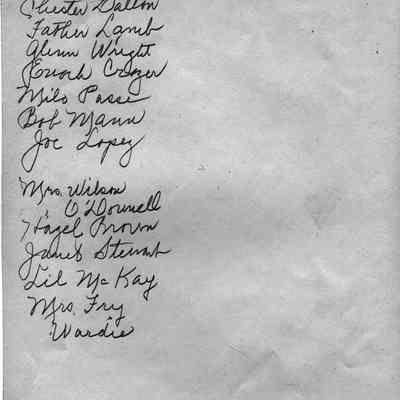 Chester Dalton
Father Lamb
Glenn Wright
Enoch Crozer
Milo Passe
Bob Mann
Joe Lopez
Mrs. Wilson
O'Donnell
Hazel Brown
Janet Stewart
Lil McKay
Mrs. Fry
Wardie